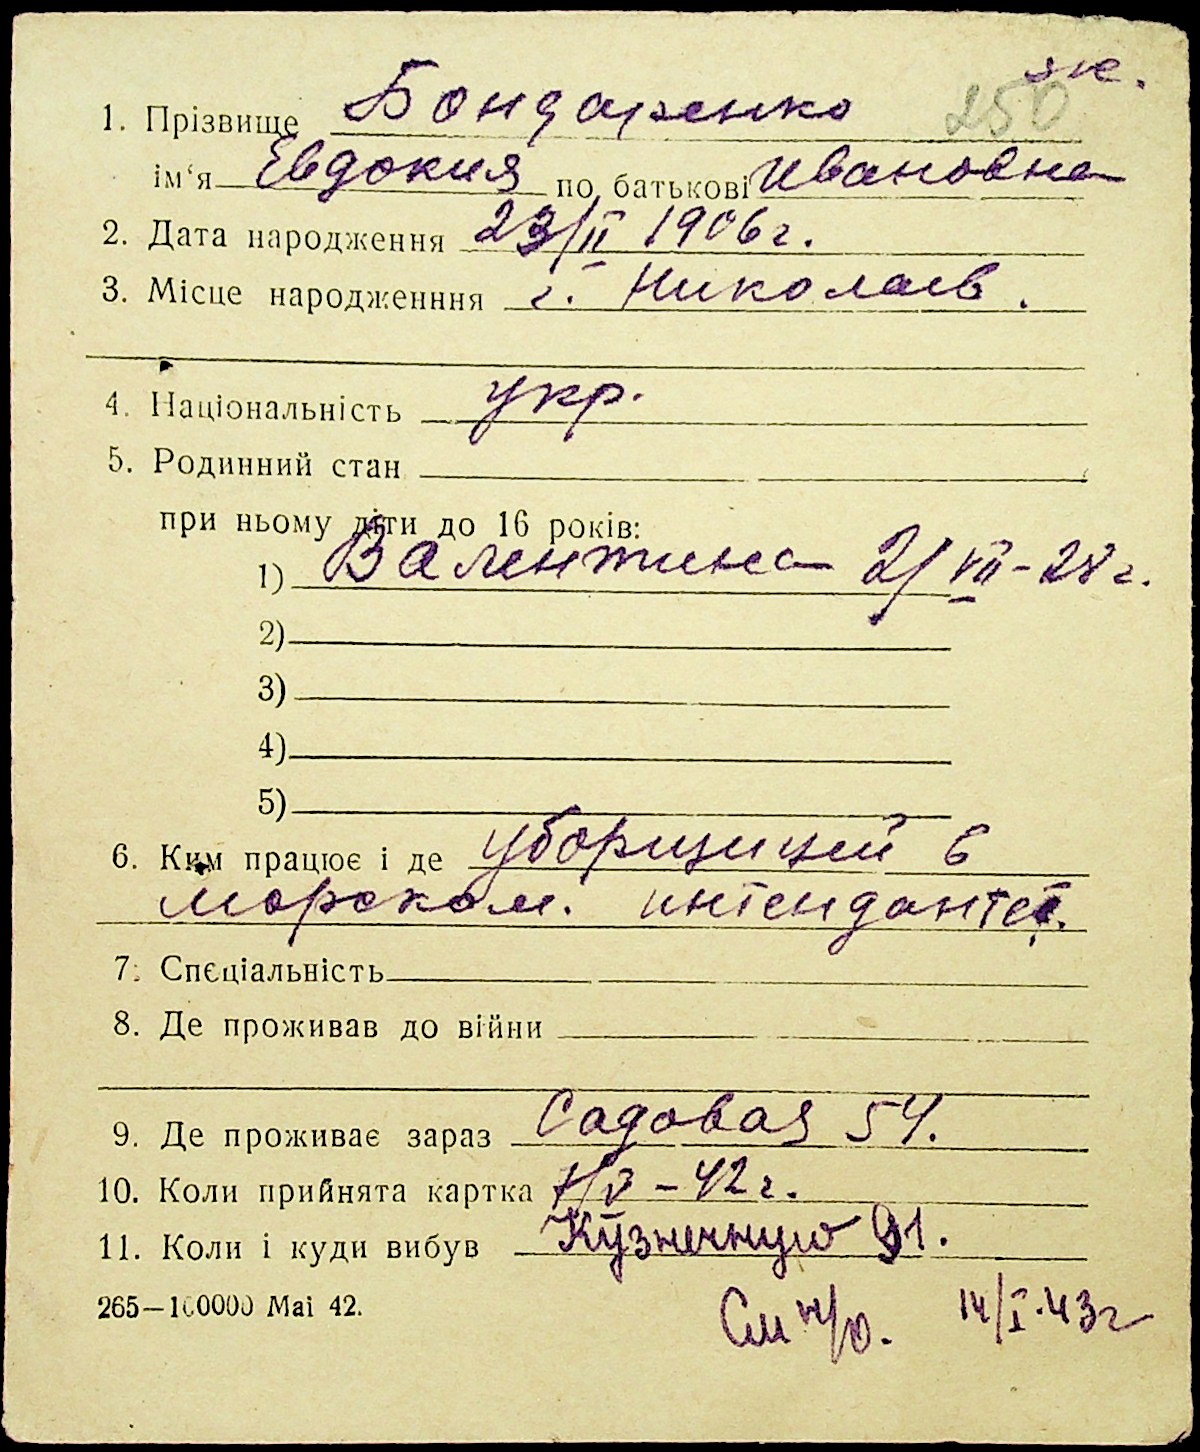 250 эк.
1. Прізвище Бондаренко
ім‘я Евдокия по батькові Ивановна
2. Дата народження 23/II 1906 г.
3. Місце народженння г. Николаев.
4. Національність укр.
5. Родинний стан
при ньому діти до 16 років:
1) Валентина 2/VII-28 г.
2)
3)
4)
5)
6. Ким працює і де уборщицей в
морском. интендантст.
7. Спєціальність
8. Де проживав до війни
9. Де проживає зараз Садовая 54.
10. Коли прийнята картка 1/V-42 г.
11. Коли і куди вибув Кузнечную 91.
265—100000 Mai 42.
См н/о. 14/I.43 г